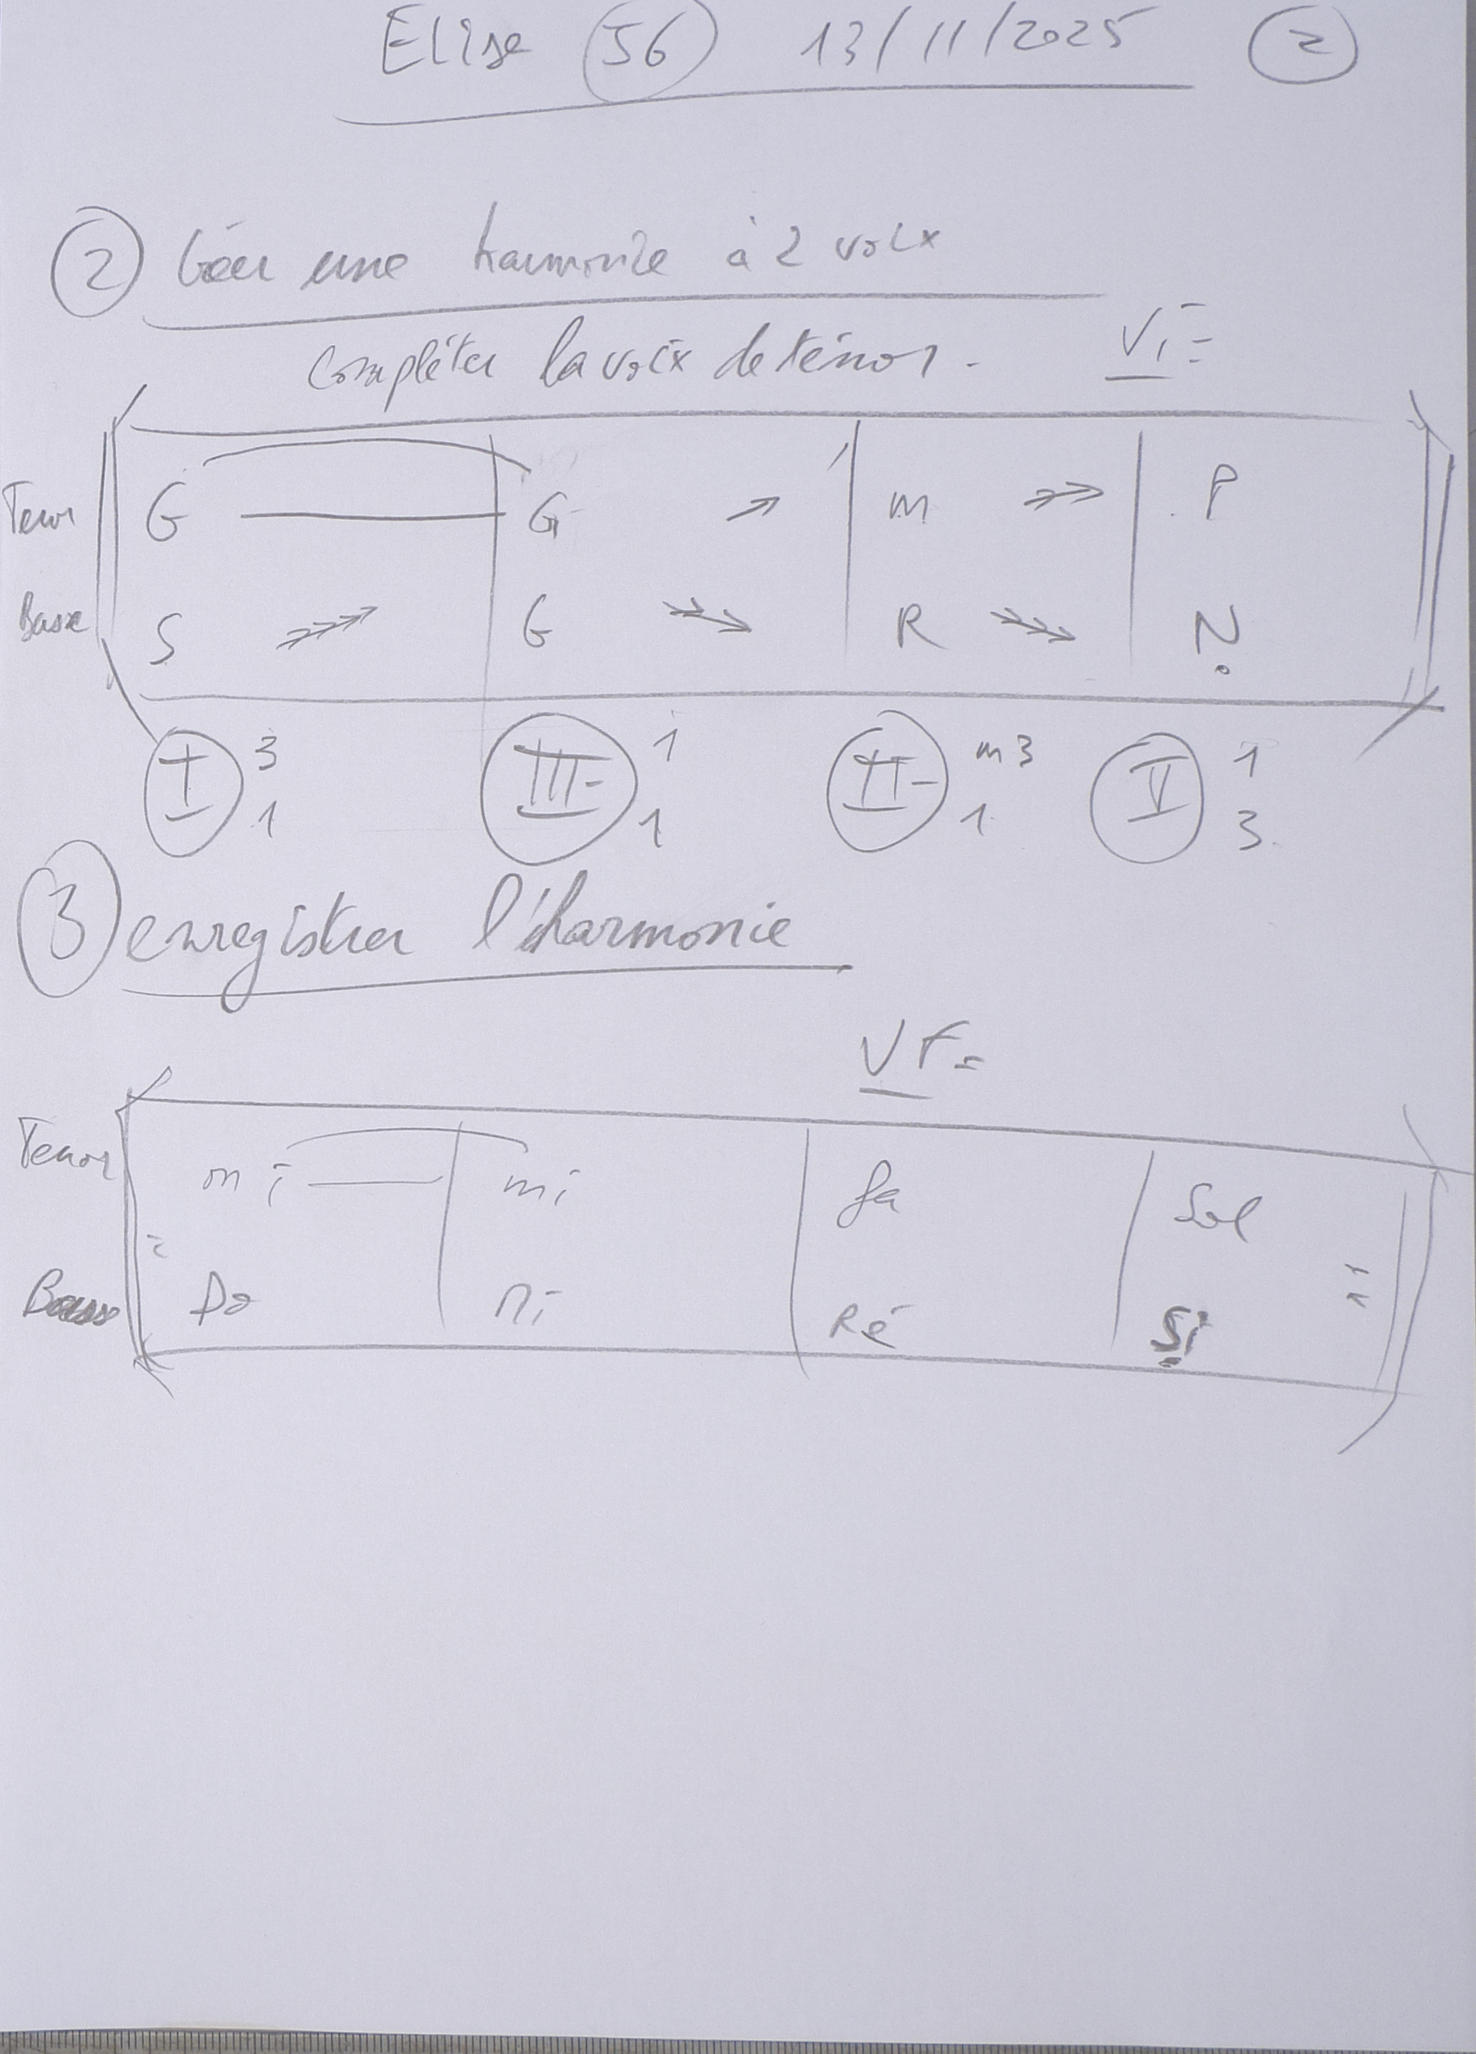 Elise 56 13/11/2025 2
2 Créer une harmonie à 2 voix
compléter la voix de ténor. Vi=
Tenor G G m P
Basse S G R Ṇ
I 3 1 III- 1 1 II- m3 1 V 1 3
3 enregistrer l'harmonie
VF=
Tenor mi mi fa Sol
Basse Do Mi Ré Sị